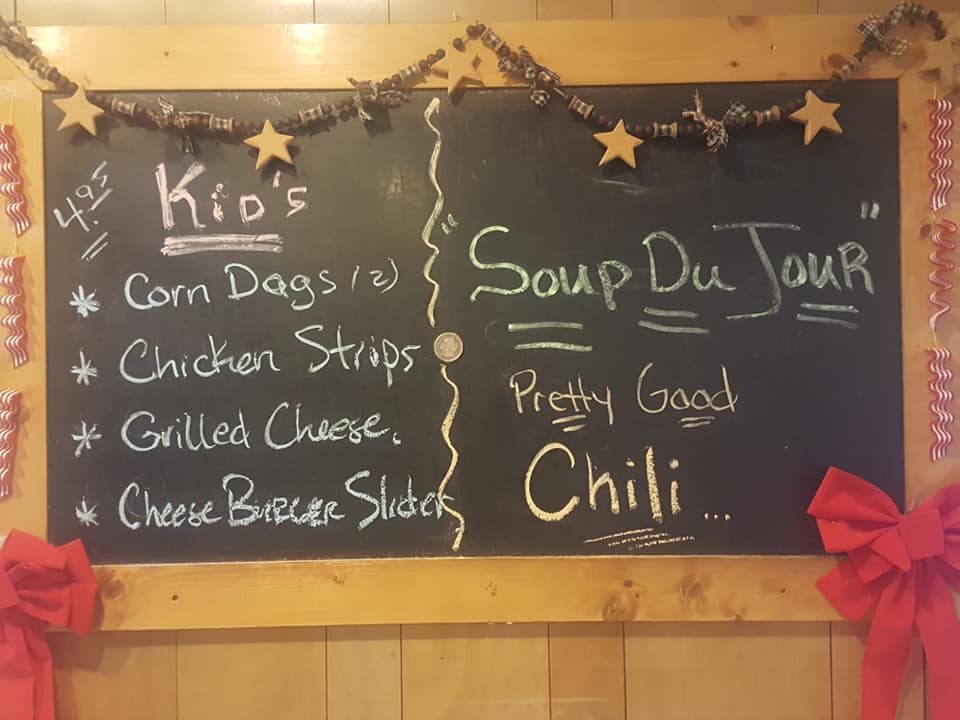 4.95
Kid's
* Corn Dogs (2)
* Chicken Strips
* Grilled Cheese.
* Cheese Burger Slider
"Soup Du Jour"
Pretty Good
Chili...